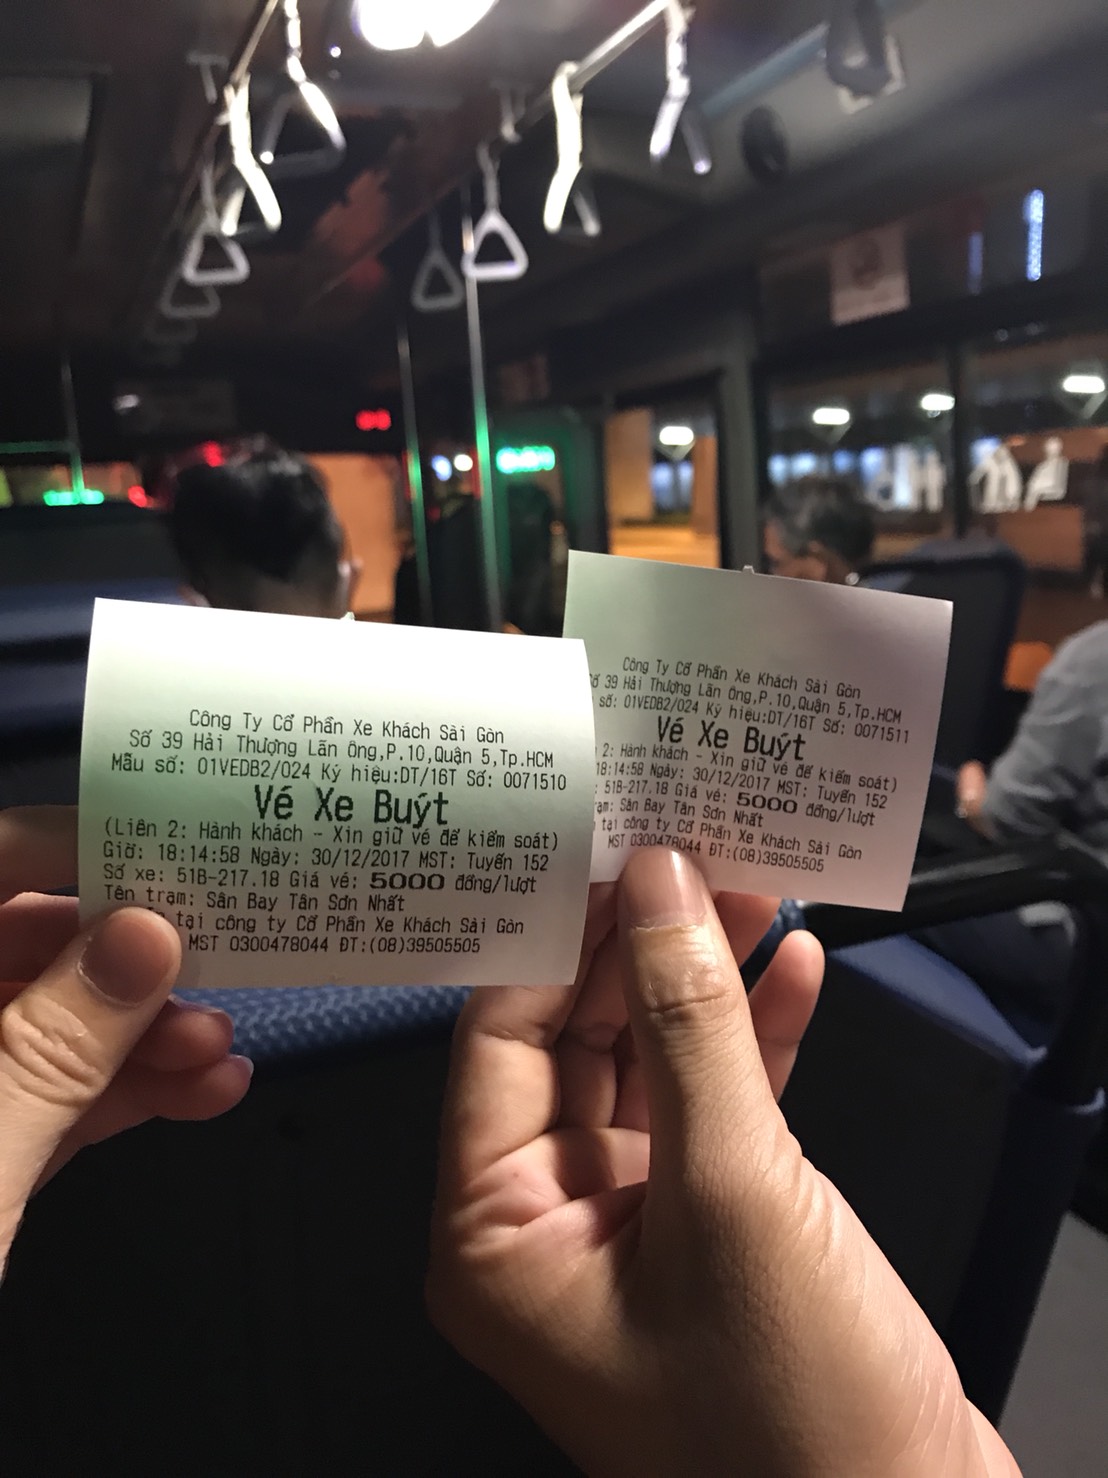 Công Ty Cổ Phần Xe Khách Sài Gòn
Số 39 Hải Thượng Lãn Ông,P.10,Quận 5,Tp.HCM
Mẫu số: 01VEDB2/024 Ký hiệu:DT/16T Số: 0071510
Vé Xe Buýt
(Liên 2: Hành khách - Xin giữ vé để kiểm soát)
Giờ: 18:14:58 Ngày: 30/12/2017 MST: Tuyến 152
Số xe: 51B-217.18 Giá vé: 5000 đồng/lượt
Tên trạm: Sân Bay Tân Sơn Nhất
tại công ty Cổ Phần Xe Khách Sài Gòn
MST 0300478044 ĐT:(08)39505505
Công Ty Cổ Phần Xe Khách Sài Gòn
39 Hải Thượng Lãn Ông,P.10,Quận 5,Tp.HCM
số: 01VEDB2/024 Ký hiệu:DT/16T Số: 0071511
Vé Xe Buýt
2: Hành khách - Xin giữ vé để kiểm soát)
18:14:58 Ngày: 30/12/2017 MST: Tuyến 152
51B-217.18 Giá vé: 5000 đồng/lượt
Sân Bay Tân Sơn Nhất
tại công ty Cổ Phần Xe Khách Sài Gòn
MST 0300478044 ĐT:(08)39505505